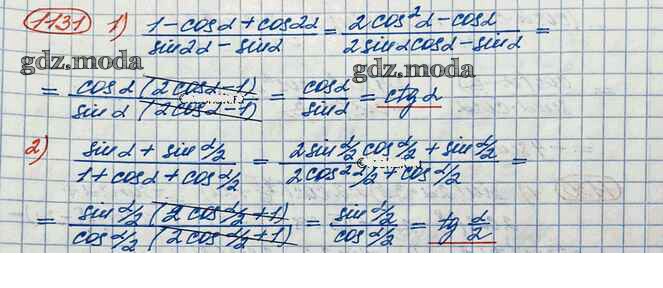 1131 1) (1 - cosα + cos2α)/(sin2α - sinα) = (2cos²α - cosα)/(2sinα cosα - sinα) =
gdz.moda gdz.moda
= (cosα (2cosα - 1))/(sinα (2cosα - 1)) = cosα/sinα = ctgα
2) (sinα + sin α/2)/(1 + cosα + cos α/2) = (2sin α/2 cos α/2 + sin α/2)/(2cos² α/2 + cos α/2) =
= (sin α/2 (2cos α/2 + 1))/(cos α/2 (2cos α/2 + 1)) = (sin α/2)/(cos α/2) = tg α/2